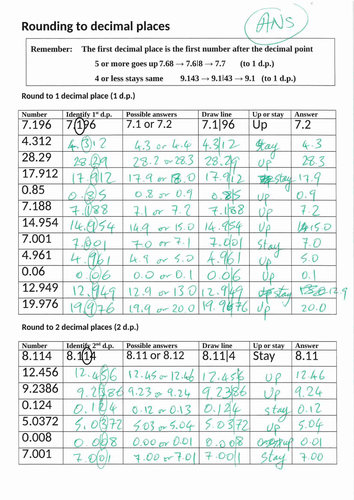 Rounding to decimal places
ANS
Remember: The first decimal place is the first number after the decimal point
5 or more goes up 7.68 → 7.6|8 → 7.7 (to 1 d.p.)
4 or less stays same 9.143 → 9.1|43 → 9.1 (to 1 d.p.)
Round to 1 decimal place (1 d.p.)
Number Identify 1st d.p. Possible answers Draw line Up or stay Answer
7.196 7.196 7.1 or 7.2 7.1|96 Up 7.2
4.312 4.312 4.3 or 4.4 4.3|12 stay 4.3
28.29 28.29 28.2 or 28.3 28.2|9 up 28.3
17.912 17.912 17.9 or 18.0 17.9|12 stay 17.9
0.85 0.85 0.8 or 0.9 0.8|5 up 0.9
7.188 7.188 7.1 or 7.2 7.1|88 up 7.2
14.954 14.954 14.9 or 15.0 14.9|54 up 15.0
7.001 7.001 7.0 or 7.1 7.0|01 stay 7.0
4.961 4.961 4.9 or 5.0 4.9|61 up 5.0
0.06 0.06 0.0 or 0.1 0.0|6 up 0.1
12.949 12.949 12.9 or 13.0 12.9|49 stay 12.9
19.976 19.976 19.9 or 20.0 19.9|76 up 20.0
Round to 2 decimal places (2 d.p.)
Number Identify 2nd d.p. Possible answers Draw line Up or stay Answer
8.114 8.114 8.11 or 8.12 8.11|4 Stay 8.11
12.456 12.456 12.45 or 12.46 12.45|6 up 12.46
9.2386 9.2386 9.23 or 9.24 9.23|86 up 9.24
0.124 0.124 0.12 or 0.13 0.12|4 stay 0.12
5.0372 5.0372 5.03 or 5.04 5.03|72 up 5.04
0.008 0.008 0.00 or 0.01 0.00|8 up 0.01
7.001 7.001 7.00 or 7.01 7.00|1 stay 7.00